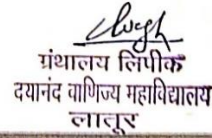 ग्रंथालय लिपीक
दयानंद वाणिज्य महाविद्यालय
लातूर